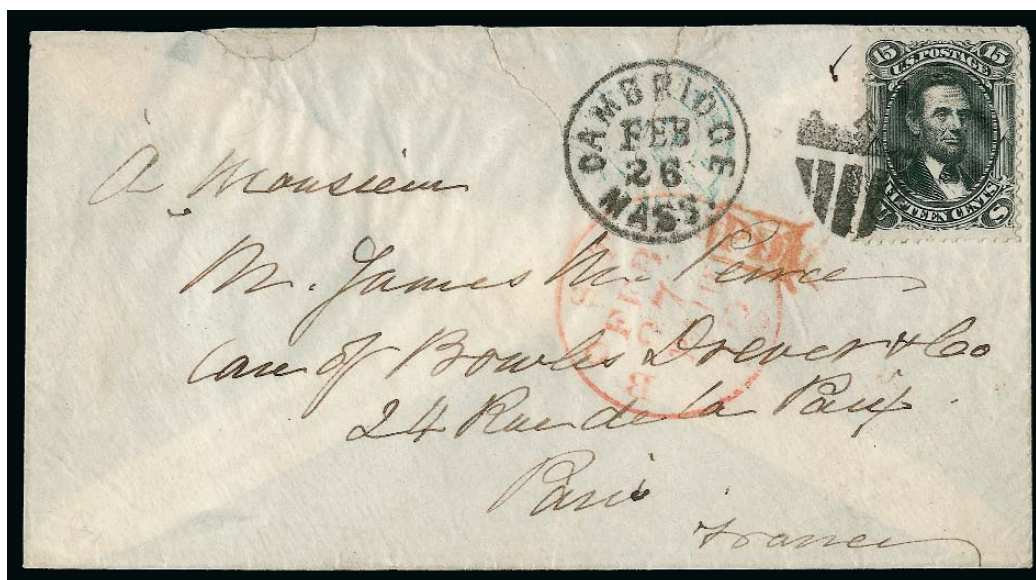 15 U.S. POSTAGE 15
FIFTEEN CENTS
CAMBRIDGE
FEB
26
MASS.
A Monsieur
M. James M. Peirce
Care of Bowles Drevet & Co
24 Rue de la Paix.
Paris
France